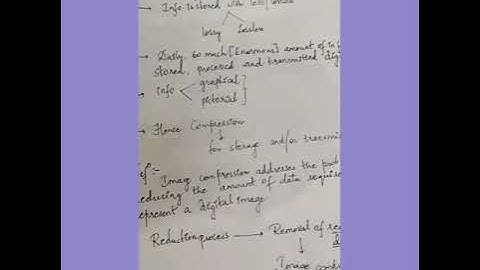 Info. is stored with loss/
lossy   lossless
→ Daily, so much [Enormous] amount of inf
stored, processed and transmitted digi
→ Info   graphical
pictorial ]
→ Hence Compression
for storage and/or transmis
Def:-
Image compression addresses the prob
reducing the amount of data require
represent a digital image
Reduction process → Removal of re
Image com